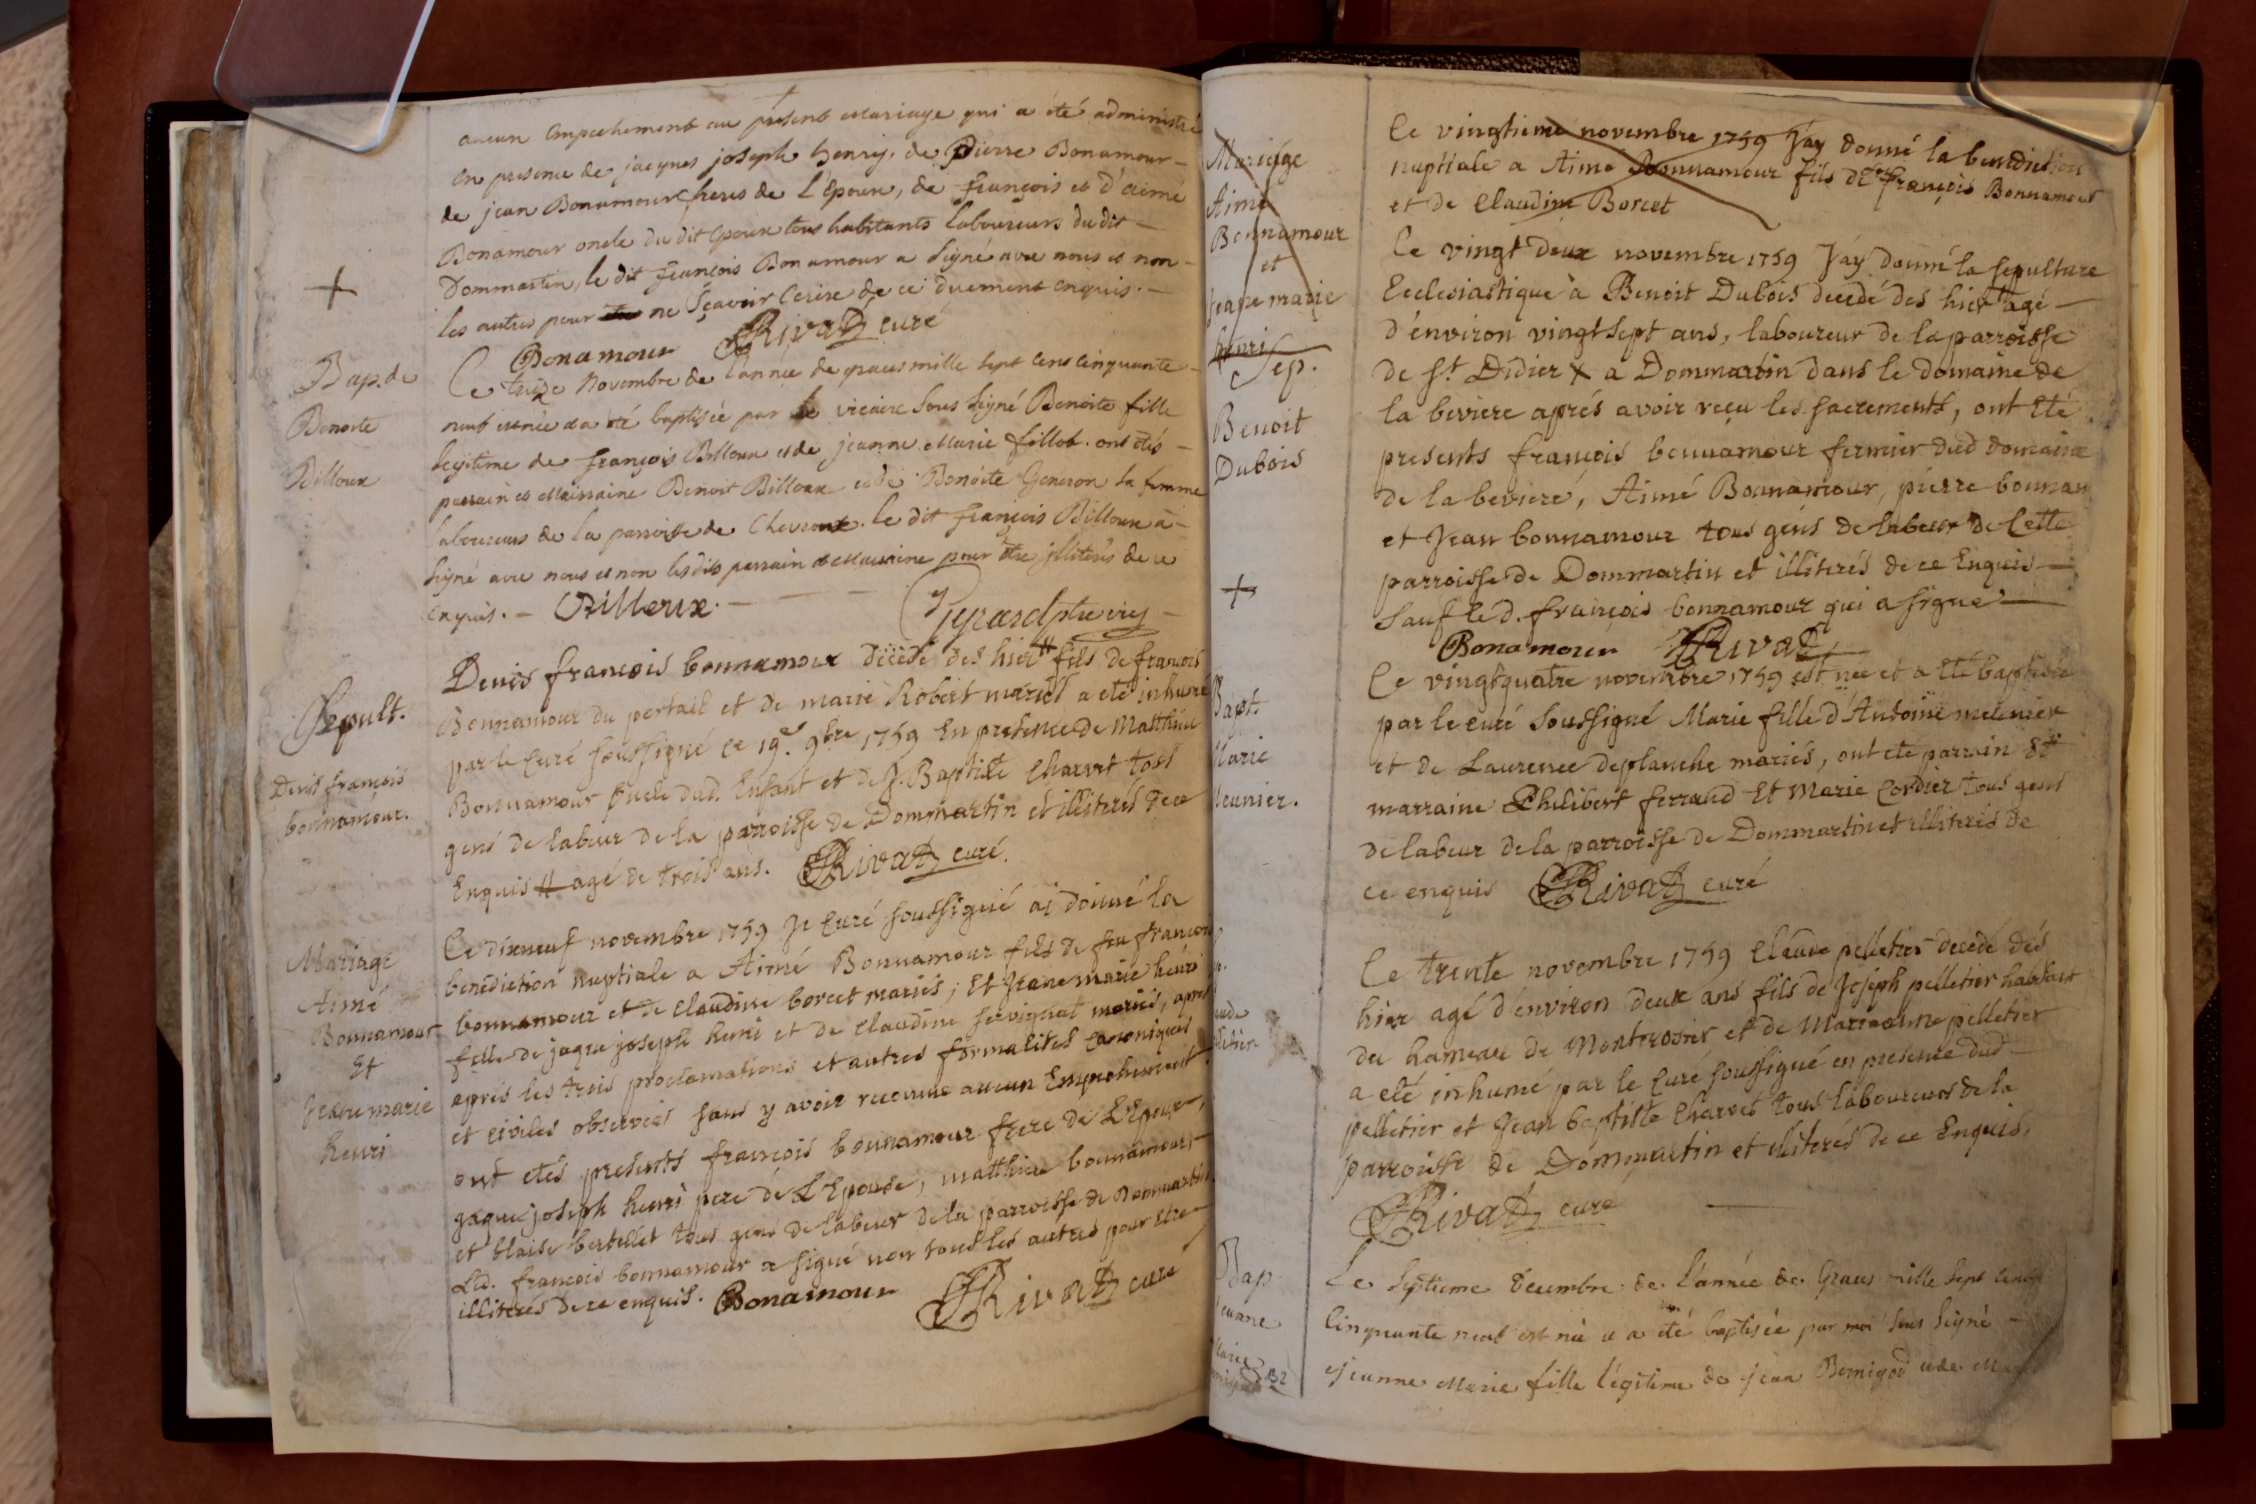 aucun empechement au present mariage qui a été administré
en presence de jacques joseph henry, de Pierre Bonamour
de jean Bonamour freres de L'Epoux, de françois et d'aimé
Bonamour oncle du dit Epoux tous habitants laboureurs du dit
Dommartin, le dit françois Bonamour a signé avec nous et non
les autres pour ne sçavoir Ecrire de ce duement enquis.
Bonamour Rivat curé
Bap. de
Benoite
Billoux
Le treize Novembre de l'année de graces mille sept cens cinquante
neuf est née et a été baptisée par le vicaire sous signé Benoite fille
legitime de françois Billoux et de jeanne Marie fillot. ont étés
parrain et Marraine Benoit Billoux et de Benoite Generon sa femme
laboureurs de la parroisse de Chevroux. le dit françois Billoux a
signé avec nous et non lesdits parrain et Marraine pour être illiterés de ce
enquis. Billoux.
Sepult.
Denis françois
bonnamour.
Denis françois bonnamour décédé des hier # fils de francois
Bonnamour du portail et de marie Robert mariés a eté inhumé
par le Curé soussigné ce 19e. 9bre 1759 En presence de Matthieu
Bonnamour Oncle dud. Enfant et de J. Baptiste Charvet tous
gens de labeur de la parroisse de Dommartin et illiterés de ce
Enquis # agé de trois ans. Rivat curé.
Mariage
Aimé
Bonnamour
Et
Jeane marie
henri
Le dixneuf novembre 1759 Je Curé soussigné ai donné la
benediction nuptiale a Aimé Bonnamour fils de feu francois
bonnamour et de Claudine borcet mariés; Et Jeane marie henri
fille de jaque joseph henri et de Claudine servignat mariés, apres
apres les trois proclamations et autres formalités Canoniques
et civiles observées sans y avoir reconnu aucun Empechement
ont etés presents francois bonnamour frere de L'Epoux,
jaque joseph henri pere de L'Epouse, matthieu bonnamour,
et blaise bertillet tous gens de labeur de la parroisse de Dommartin
Led. francois bonnamour a signé non tous les autres pour Etre
illiterés de ce enquis. Bonamour Rivat curé
Mariage
Aimé
Bonnamour
et
Jeane marie
henri
Le vingtieme novembre 1759 J'ay donné la benediction
nuptiale a Aimé Bonnamour fils de françois Bonnamour
et de Claudine Borcet
Sep.
Benoit
Dubois
Le vingt deux novembre 1759 J'ay donné la sepulture
Ecclesiastique à Benoit Dubois decedé des hier agé
d'environ vingt sept ans, laboureur de la parroisse
de St. Didier a Dommartin dans le domaine de
la beviere aprés avoir reçu les sacrements, ont Eté
presents francois bonnamour fermier dud domaine
de la beviere, Aimé Bonnamour, pierre bonnam
et Jean bonnamour tous gens de labeur de Cette
parroisse de Dommartin et illiterés de ce Enquis
Sauf led. françois bonnamour qui a signé
Bonamour Rivat
Bapt.
Marie
Meunier.
Le vingt quatre novembre 1759 est née et a Eté baptisée
par le curé soussigné Marie fille d'Antoine meunier
et de Laurence deplanche mariés, ont eté parrain Et
marraine Philibert ferraud Et Marie Cordier tous gens
de labeur de la parroisse de Dommartin et illiterés de
ce enquis Rivat curé
Le trente novembre 1759 Claude pelletier decedé des
hier agé d'environ deux ans fils de Joseph pelletier habitant
du hameau de Monterosier et de Marieanne pelletier
a eté inhumé par le Curé soussigné en presence dud
pelletier et Jean baptiste Charvet tous laboureurs de la
parroisse de Dommartin et illiterés de ce Enquis.
Rivat curé
Bap
132
Le septieme decembre de l'année de Graces mille sept cents
Cinquante neuf est née et a été baptisée par moi sous signé
jeanne Marie fille légitime de jean Bernigod et de